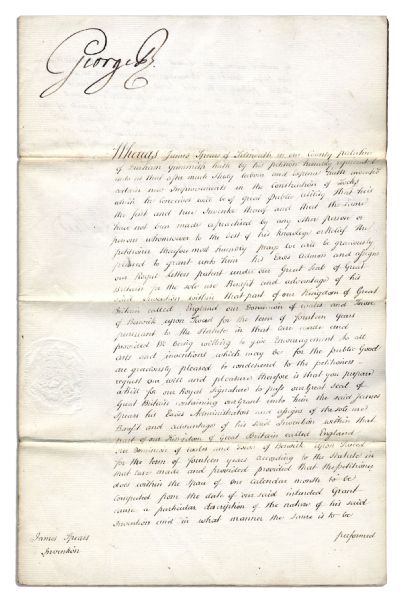 George R
Whereas James Spears of Tilmouth in our County palatine
of Durham hath by his petition humbly represented
unto us that after much Study labour and expence hath invented
certain new Improvements in the Construction of Locks
which he conceives will be of great Public utility that he is
the first and true Inventor thereof and that the same
has not been made or practised by any other person or
persons whomsoever to the best of his knowledge or belief the
petitioner therefore most humbly prays we will be graciously
pleased to grant unto him his Exors Admors and assigns
our Royal letters patent under our Great Seal of Great
Britain for the sole use Benefit and advantage of his
said Invention within that part of our Kingdom of Great
Britain called England our Dominion of wales and Town
of Berwick upon Tweed for the term of fourteen Years
pursuant to the Statute in that Case made and
provided We being willing to give Encouragement to all
arts and inventions which may be for the public Good
are graciously pleased to condescend to the petitioners
request our will and pleasure therefore is that you prepare
a bill for our Royal Signature to pass our great Seal of
Great Britain containing our Grant unto him the said James
Spears his Exors Administrators and assigns of the sole use
Benefit and advantage of his said Invention within that
part of our Kingdom of Great Britain called England
our Dominion of wales and Town of Berwick upon Tweed
for the term of fourteen years according to the Statute in
that Case made and provided provided that the petitioner
does within the Space of one Calendar month to be
computed from the date of our said intended Grant
cause a particular description of the nature of his said
Invention and in what manner the same is to be
performed
James Spears
Invention